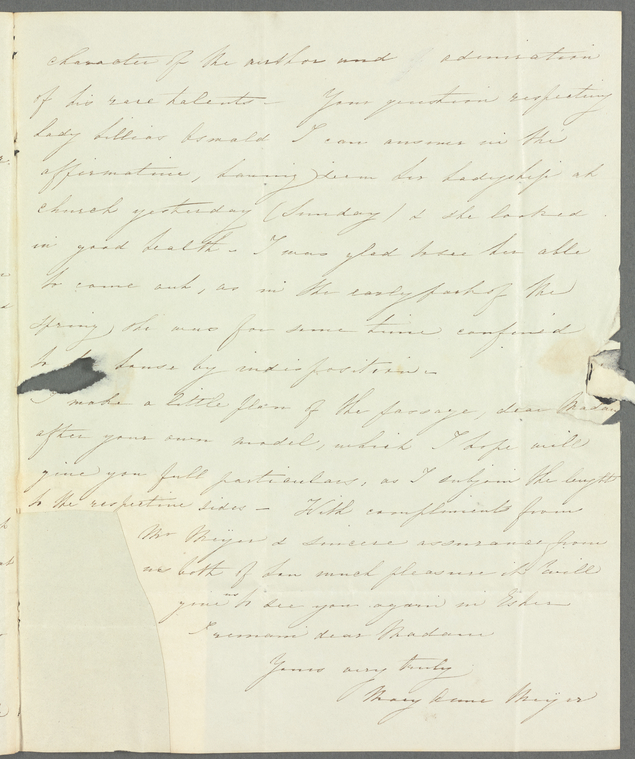 character of the author and admiration
of his rare talents – Your question respecting
Lady Lillias Oswald I can answer in the
affirmative, having seen her Ladyship at
church yesterday (Sunday) & she looked
in good health – I was glad to see her able
to come out, as in the early part of the
Spring she was for some time confin'd
to house by indisposition –
I make a little plan of the passage, dear Madam
after your own model, which I hope will
give you full particulars, as I subjoin the lenght
to the respective sides – With compliments from
Mr Meyer & sincere assurance from
us both of how much pleasure it will
give us to see you again in Esher
I remain dear Madam
Yours very truly
Mary Anne Meyer